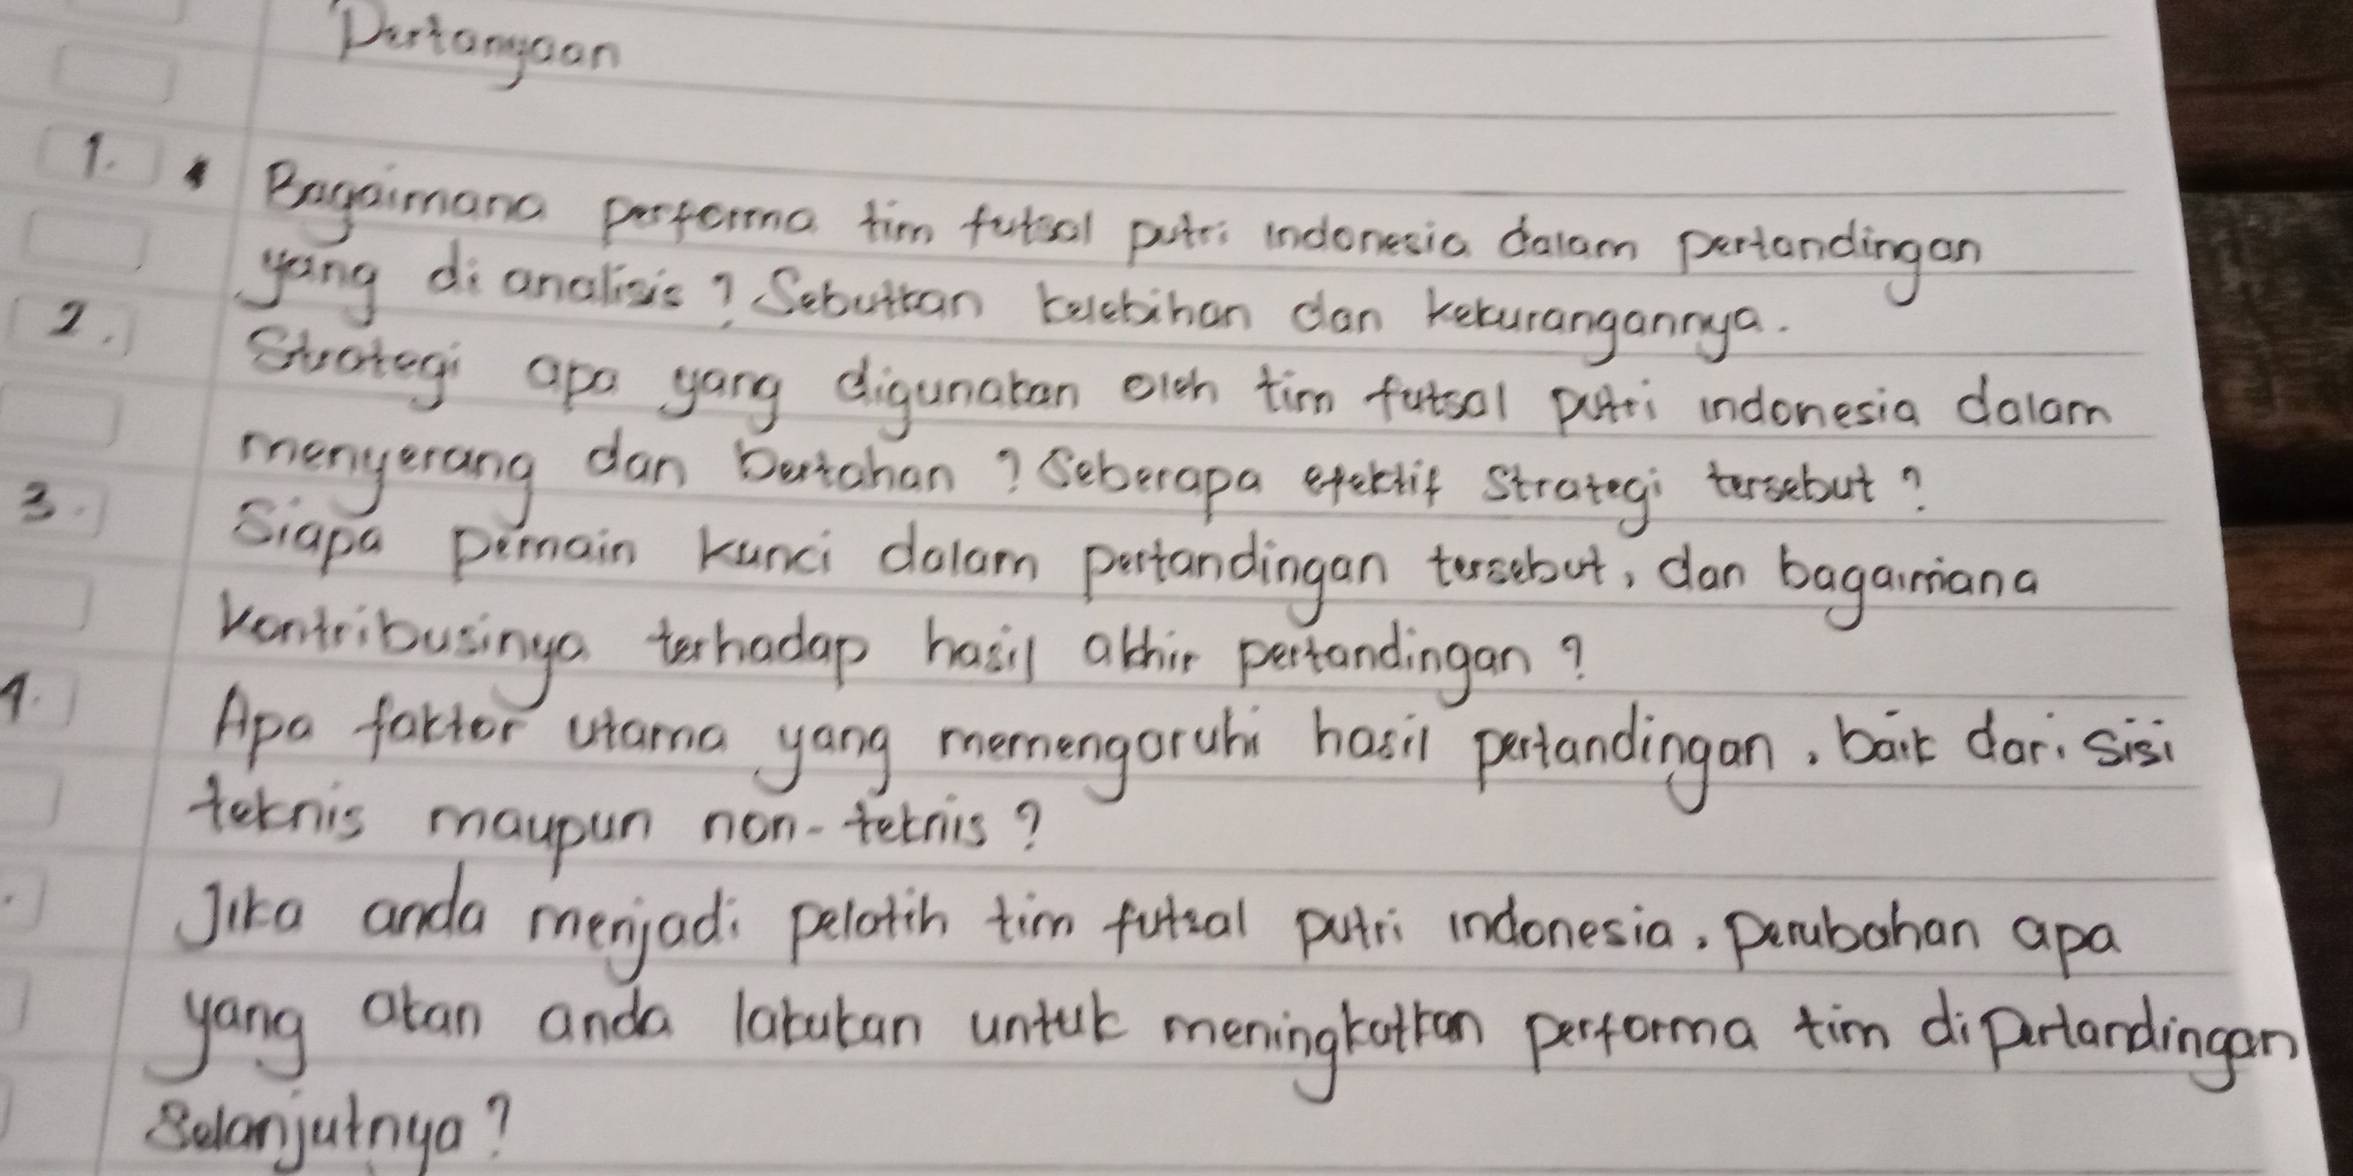 Pertanyaan
1. Bagaimana performa tim futsal putri indonesia dalam pertandingan
yang di analisis? Sebutkan kelebihan dan kekurangannya.
2. Strategi apa yang digunakan oleh tim futsal putri indonesia dalam
menyerang dan bertahan? Seberapa efektif strategi tersebut?
3. Siapa pemain kunci dalam pertandingan tersebut, dan bagaimana
kontribusinya terhadap hasil akhir pertandingan?
4. Apa faktor utama yang memengaruhi hasil pertandingan, baik dari sisi
teknis maupun non-teknis?
Jika anda menjadi pelatih tim futsal putri indonesia, perubahan apa
yang akan anda lakukan untuk meningkatkan performa tim dipertandingan
selanjutnya?